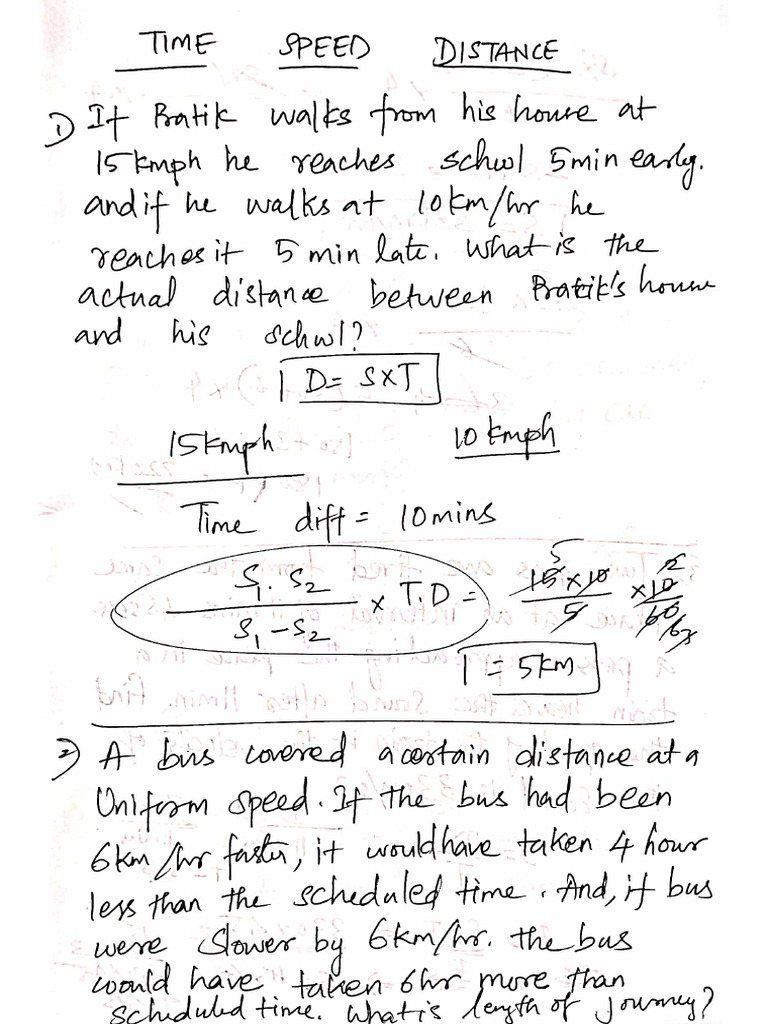 TIME SPEED DISTANCE
1) If Pratik walks from his house at
15kmph he reaches school 5min early.
and if he walks at 10km/hr he
reaches it 5 min late. What is the
actual distance between Pratik's house
and his school?
D = S×T
15kmph 10kmph
Time diff = 10mins
S1.S2 / S1-S2 × T.D = 15×10 / 5 × 10 / 60
= 5km
2) A bus covered a certain distance at a
Uniform speed. If the bus had been
6km/hr faster, it would have taken 4 hour
less than the scheduled time. And, if bus
were slower by 6km/hr. the bus
would have taken 6hr more than
scheduled time. What is length of journey?